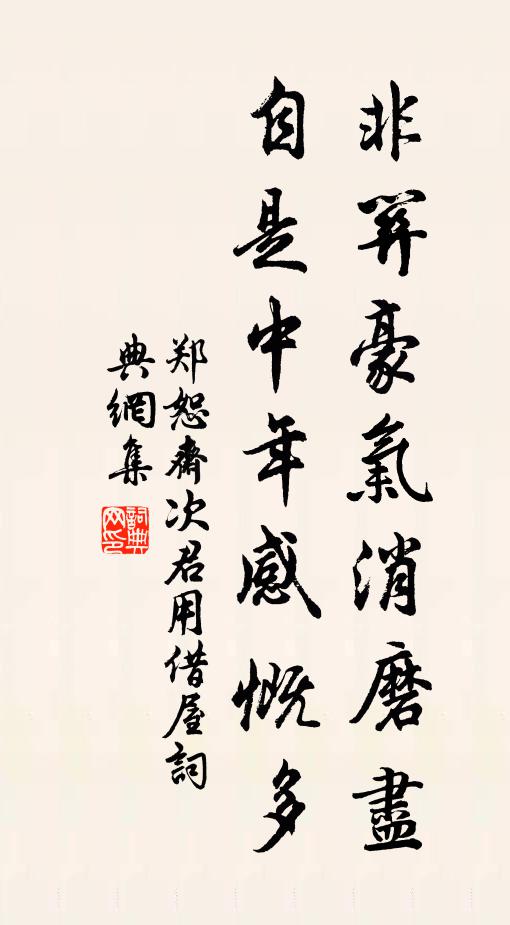 非關豪氣消磨盡
自是中年感慨多
郑恕齋次君用借屋詞
典網集
詞典網印